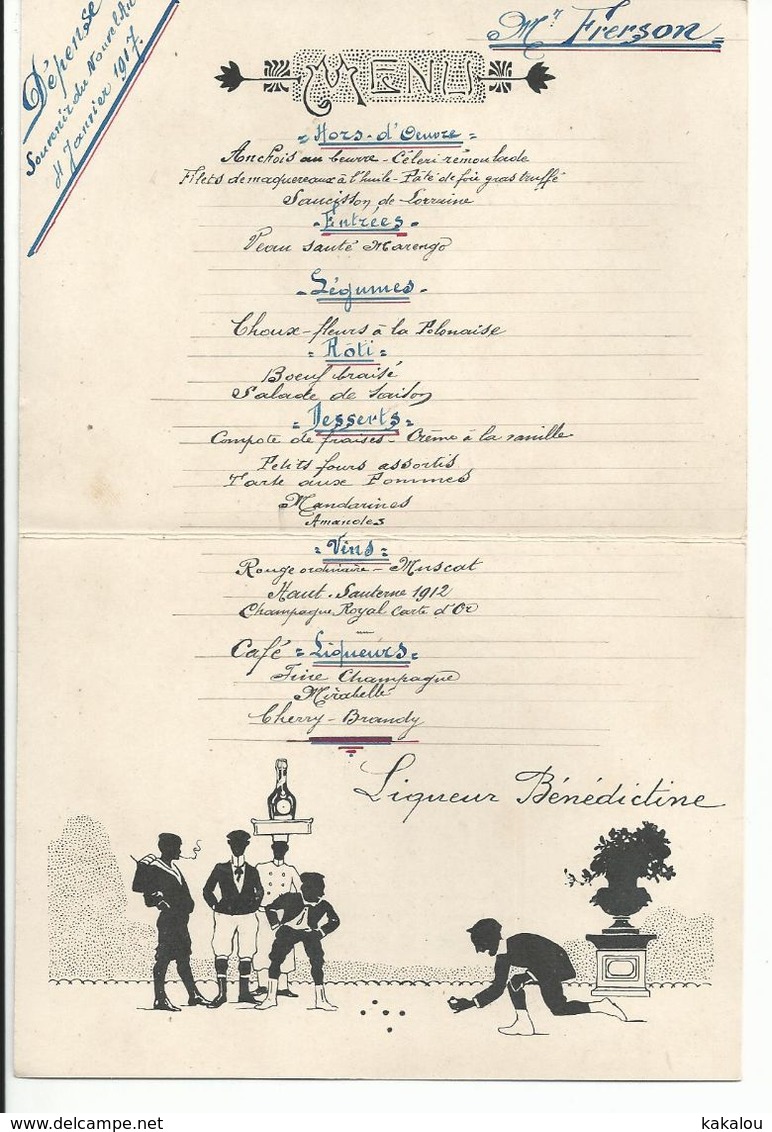 Dépense
Souvenir du Nouvel An
Janvier 1917.
Mr Frerson
MENU
= Hors-d'Oeuvre =
Anchois au beurre - Céleri rémoulade
Filets de maquereaux à l'huile - Pâté de foie gras truffé
Saucisson de Lorraine
- Entrées -
Veau sauté Marengo
- Légumes -
Choux-fleurs à la Polonaise
= Rôti =
Boeuf braisé
Salade de saison
= Desserts =
Compote de fraises - Crème à la vanille
Petits fours assortis
Tarte aux Pommes
Mandarines
Amandes
= Vins =
Rouge ordinaire - Muscat
Haut-Sauterne 1912
Champagne Royal Carte d'Or
Café = Liqueurs =
Fine Champagne
Mirabelle
Cherry-Brandy
Liqueur Bénédictine
www.delcampe.net
kakalou